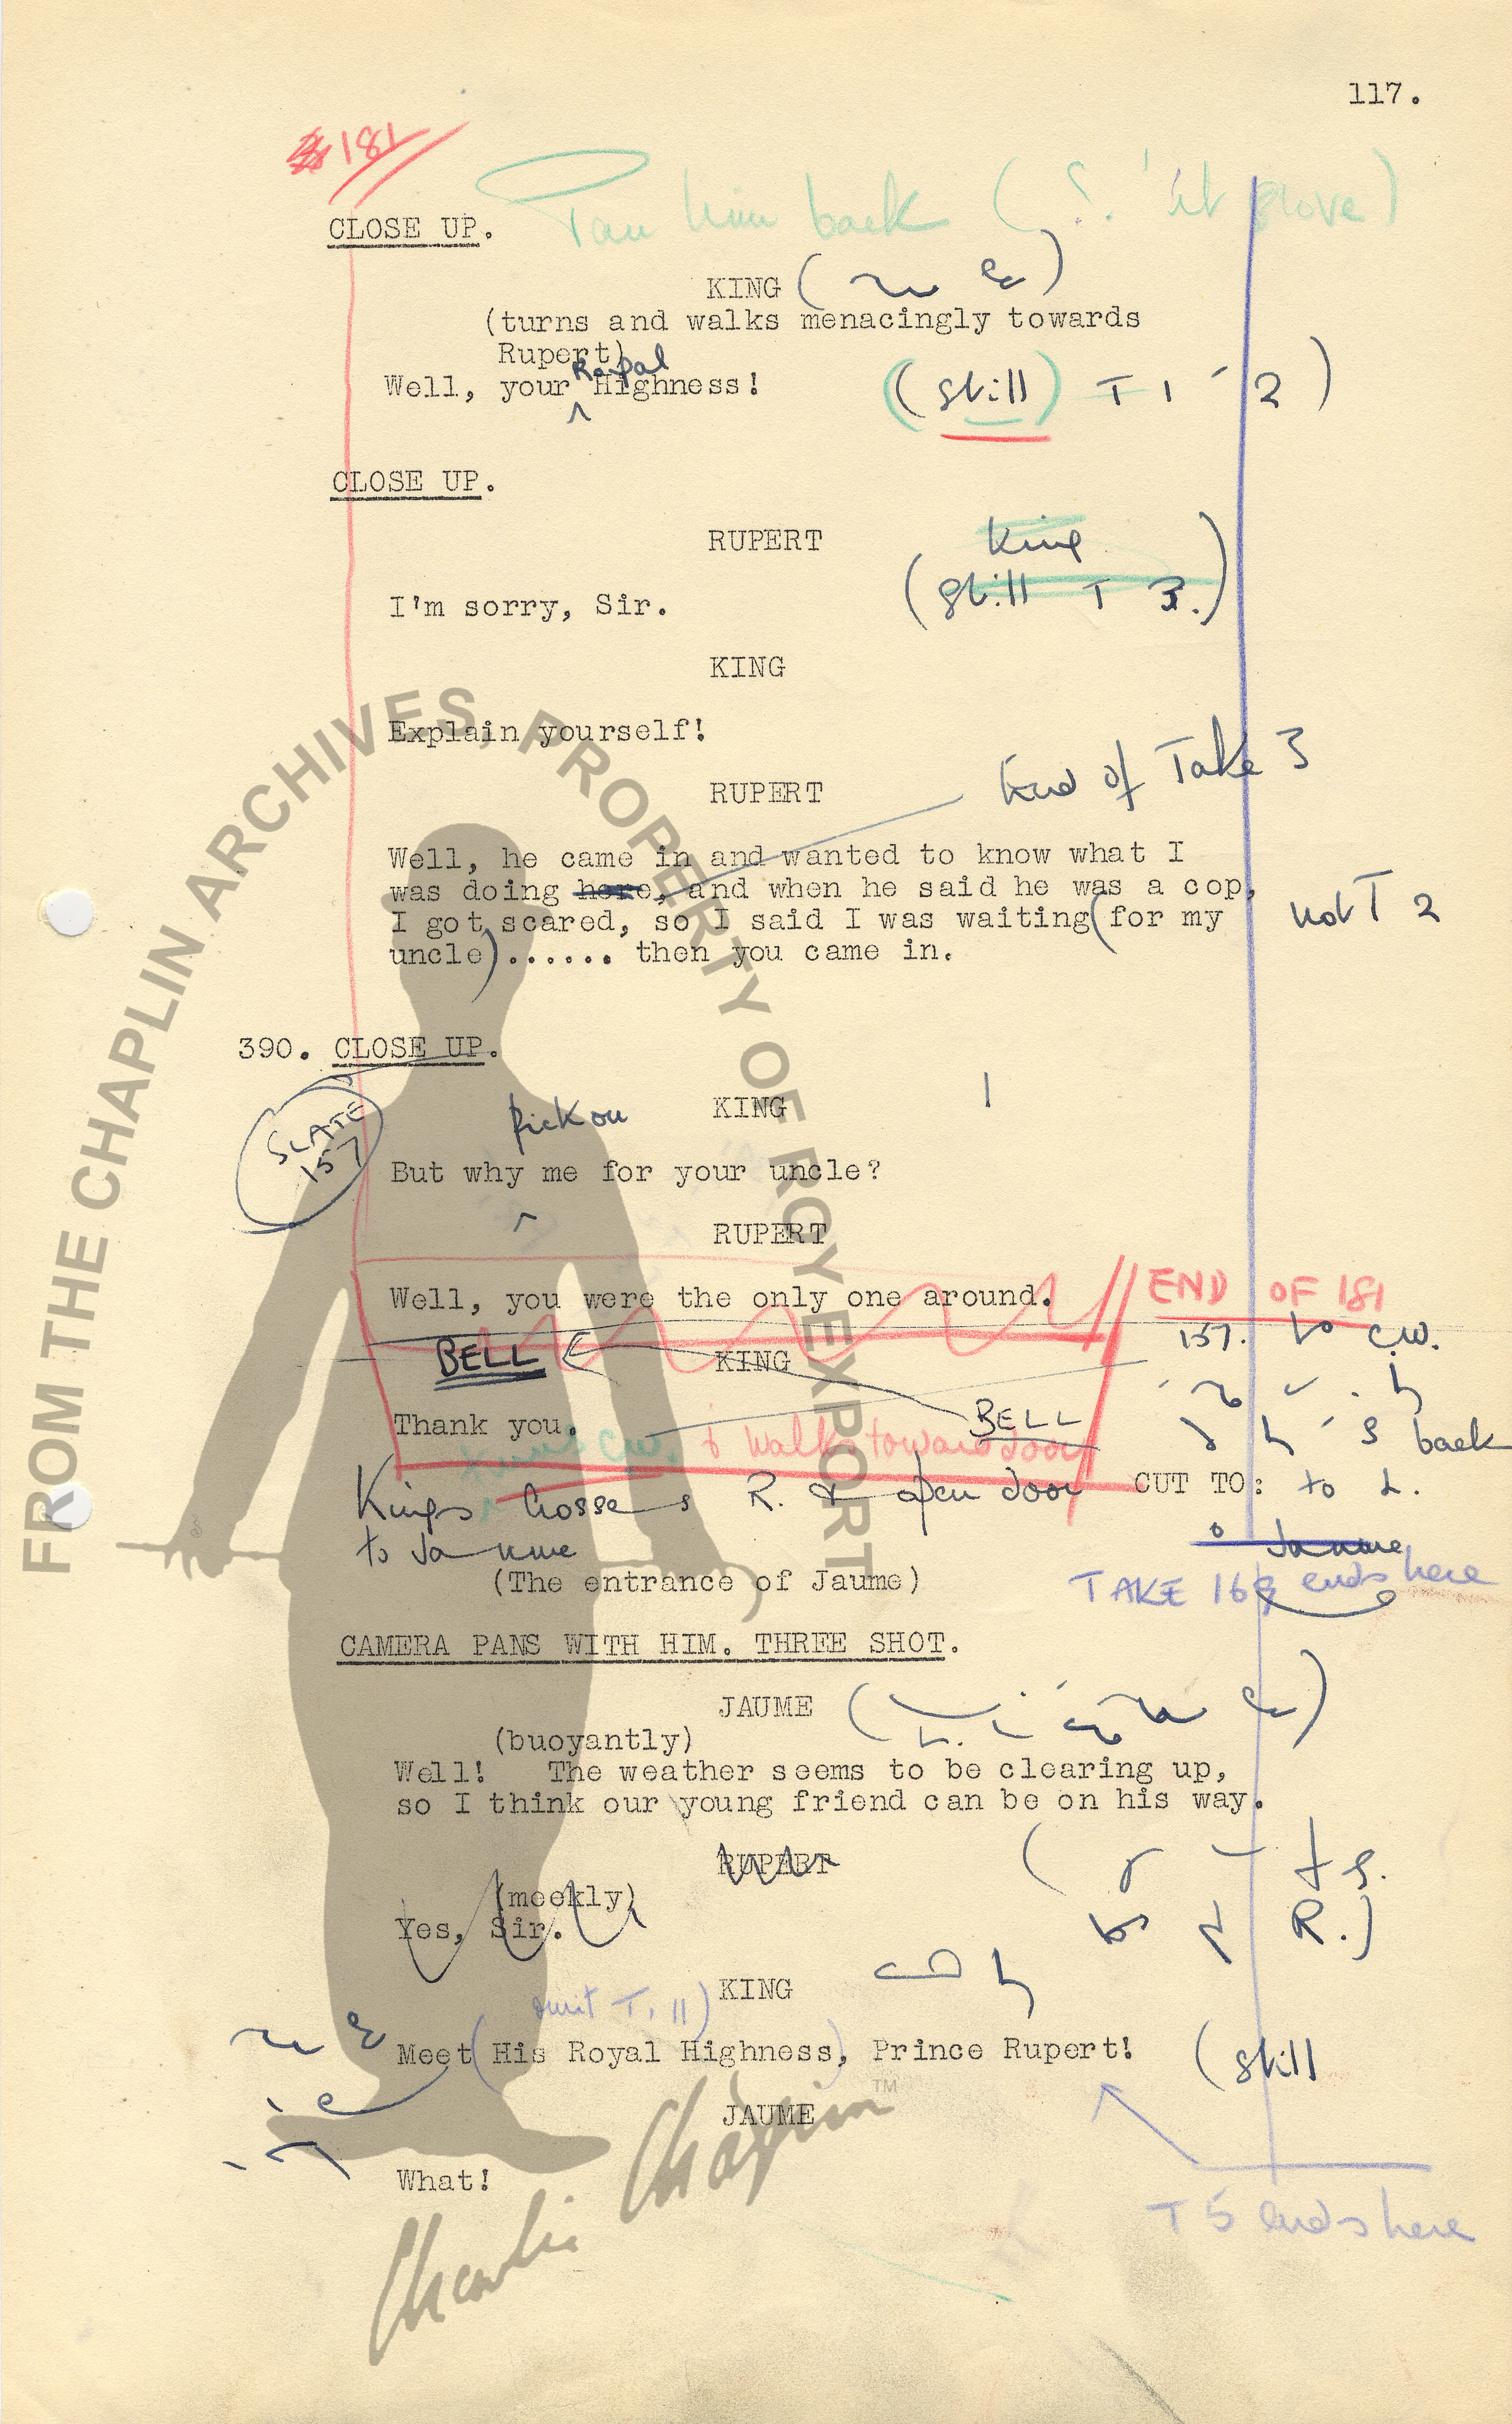 117.
181
Pan him back ( glove)
CLOSE UP.
KING
(turns and walks menacingly towards
Rupert)
Royal
Well, your Highness!
(still) T 1 - 2 )
CLOSE UP.
RUPERT
King
(still T 3.)
I'm sorry, Sir.
KING
Explain yourself!
End of Take 3
RUPERT
Well, he came in and wanted to know what I
was doing here, and when he said he was a cop,
I got scared, so I said I was waiting (for my
not T 2
uncle)...... then you came in.
390. CLOSE UP.
SLATE
157
KING
Pick on
But why me for your uncle?
RUPERT
Well, you were the only one around.
END OF 181
157. to C.W.
BELL
KING
Thank you.
BELL
C.W. & walks toward door
back
Kings Crosses R. & open door
CUT TO: to L.
to Jaume
Jaume
(The entrance of Jaume)
TAKE 168 ends here
CAMERA PANS WITH HIM. THREE SHOT.
JAUME
(buoyantly)
Well! The weather seems to be clearing up,
so I think our young friend can be on his way.
RUPERT
(meekly)
Yes, Sir.
R.)
KING
omit T. 11)
Meet (His Royal Highness), Prince Rupert!
(still
JAUME
What!
T 5 ends here
FROM THE CHAPLIN ARCHIVES, PROPERTY OF ROY EXPORT
Charlie Chaplin™